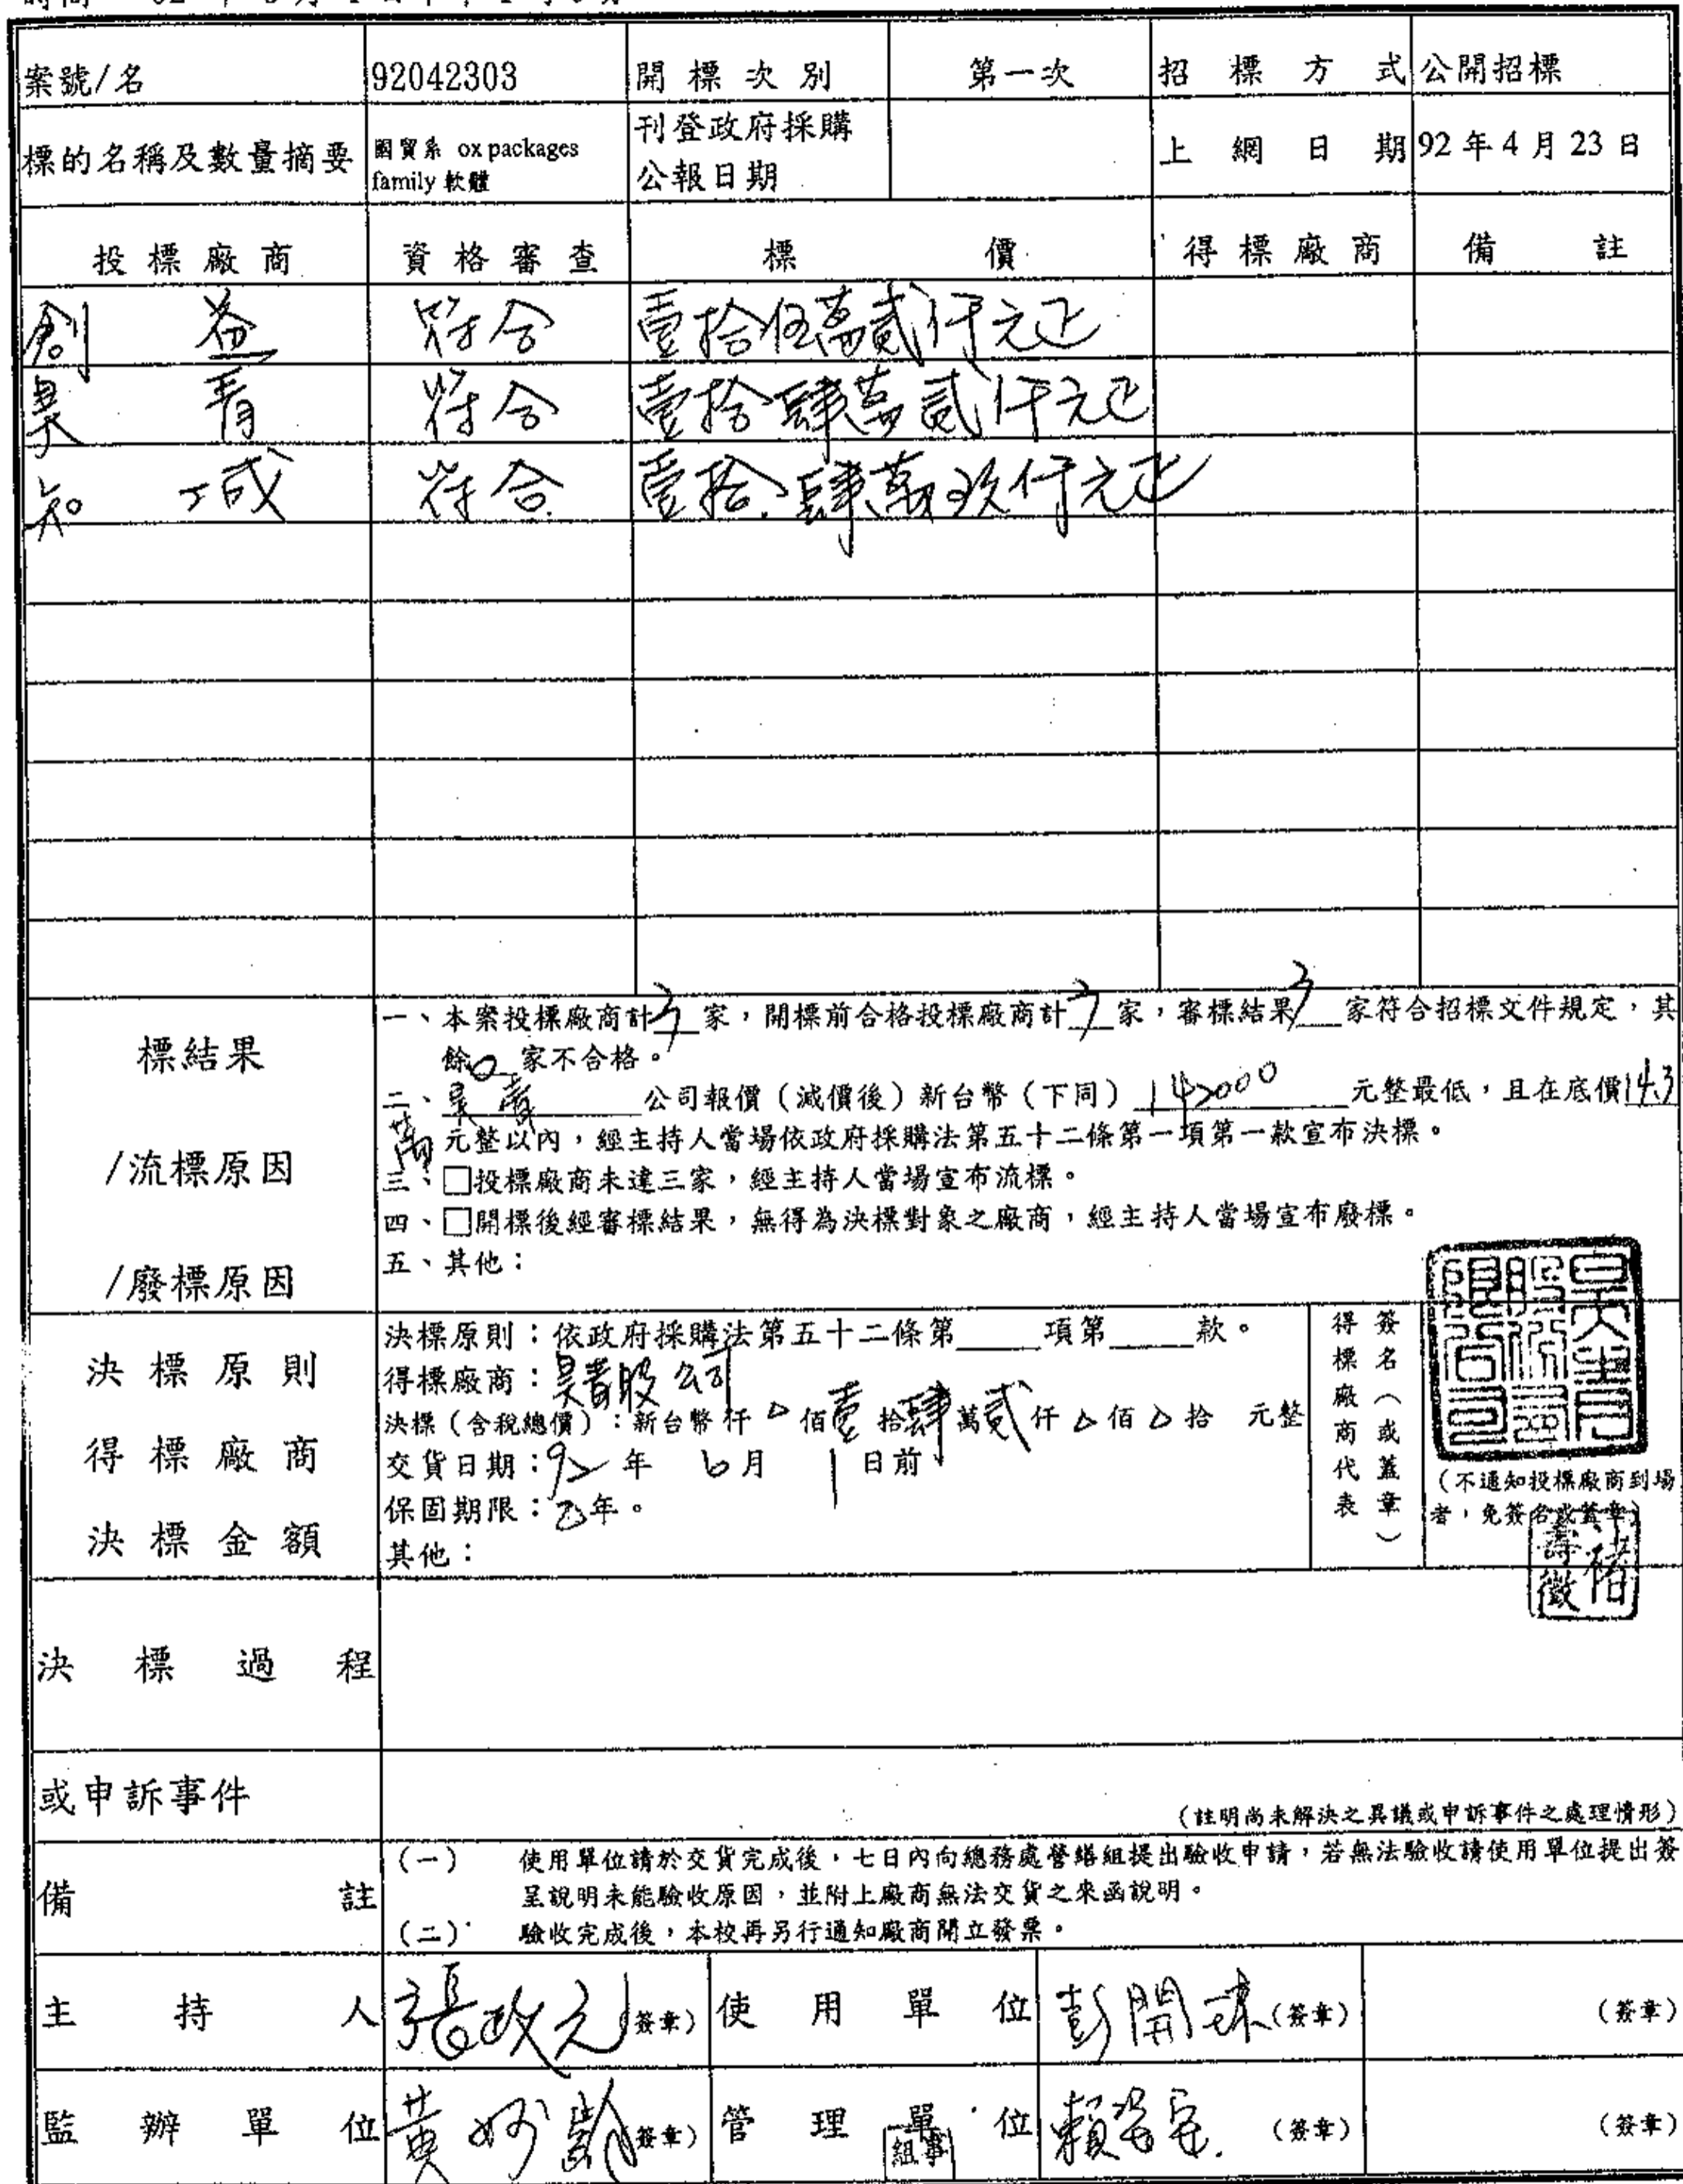 案號/名 92042303 開標次別 第一次 招標方式 公開招標
標的名稱及數量摘要 國貿系 ox packages family 軟體 刊登政府採購公報日期 上網日期 92年4月23日
投標廠商 資格審查 標價 得標廠商 備註
創益 符合 壹拾伍萬貳仟元正
昊青 符合 壹拾肆萬貳仟元正
知城 符合 壹拾肆萬玖仟元正
標結果
/流標原因
/廢標原因
一、本案投標廠商計3家,開標前合格投標廠商計3家,審標結果3家符合招標文件規定,其
餘0家不合格。
二、昊青公司報價(減價後)新台幣(下同)142000元整最低,且在底價14.3
萬元整以內,經主持人當場依政府採購法第五十二條第一項第一款宣布決標。
三、□投標廠商未達三家,經主持人當場宣布流標。
四、□開標後經審標結果,無得為決標對象之廠商,經主持人當場宣布廢標。
五、其他:
決標原則
得標廠商
決標金額
決標原則:依政府採購法第____項第____款。
得標廠商:昊青股公司
決標(含稅總價):新台幣 仟 佰壹拾肆萬貳仟 佰 拾 元整
交貨日期:92年 6月 1日前
保固期限: 年。
其他:
得標廠商代表
簽名(或蓋章)
昊青股份有限公司
(不通知投標廠商到場
者,免簽名或蓋章)
決標過程
或申訴事件
(註明尚未解決之異議或申訴事件之處理情形)
備註
(一) 使用單位請於交貨完成後,七日內向總務處營繕組提出驗收申請,若無法驗收請使用單位提出簽
呈說明未能驗收原因,並附上廠商無法交貨之來函說明。
(二) 驗收完成後,本校再另行通知廠商開立發票。
主持人 張政元(簽章) 使用單位 彭開 (簽章) (簽章)
監辦單位 黃妙齡(簽章) 管理單位 賴 (簽章) (簽章)